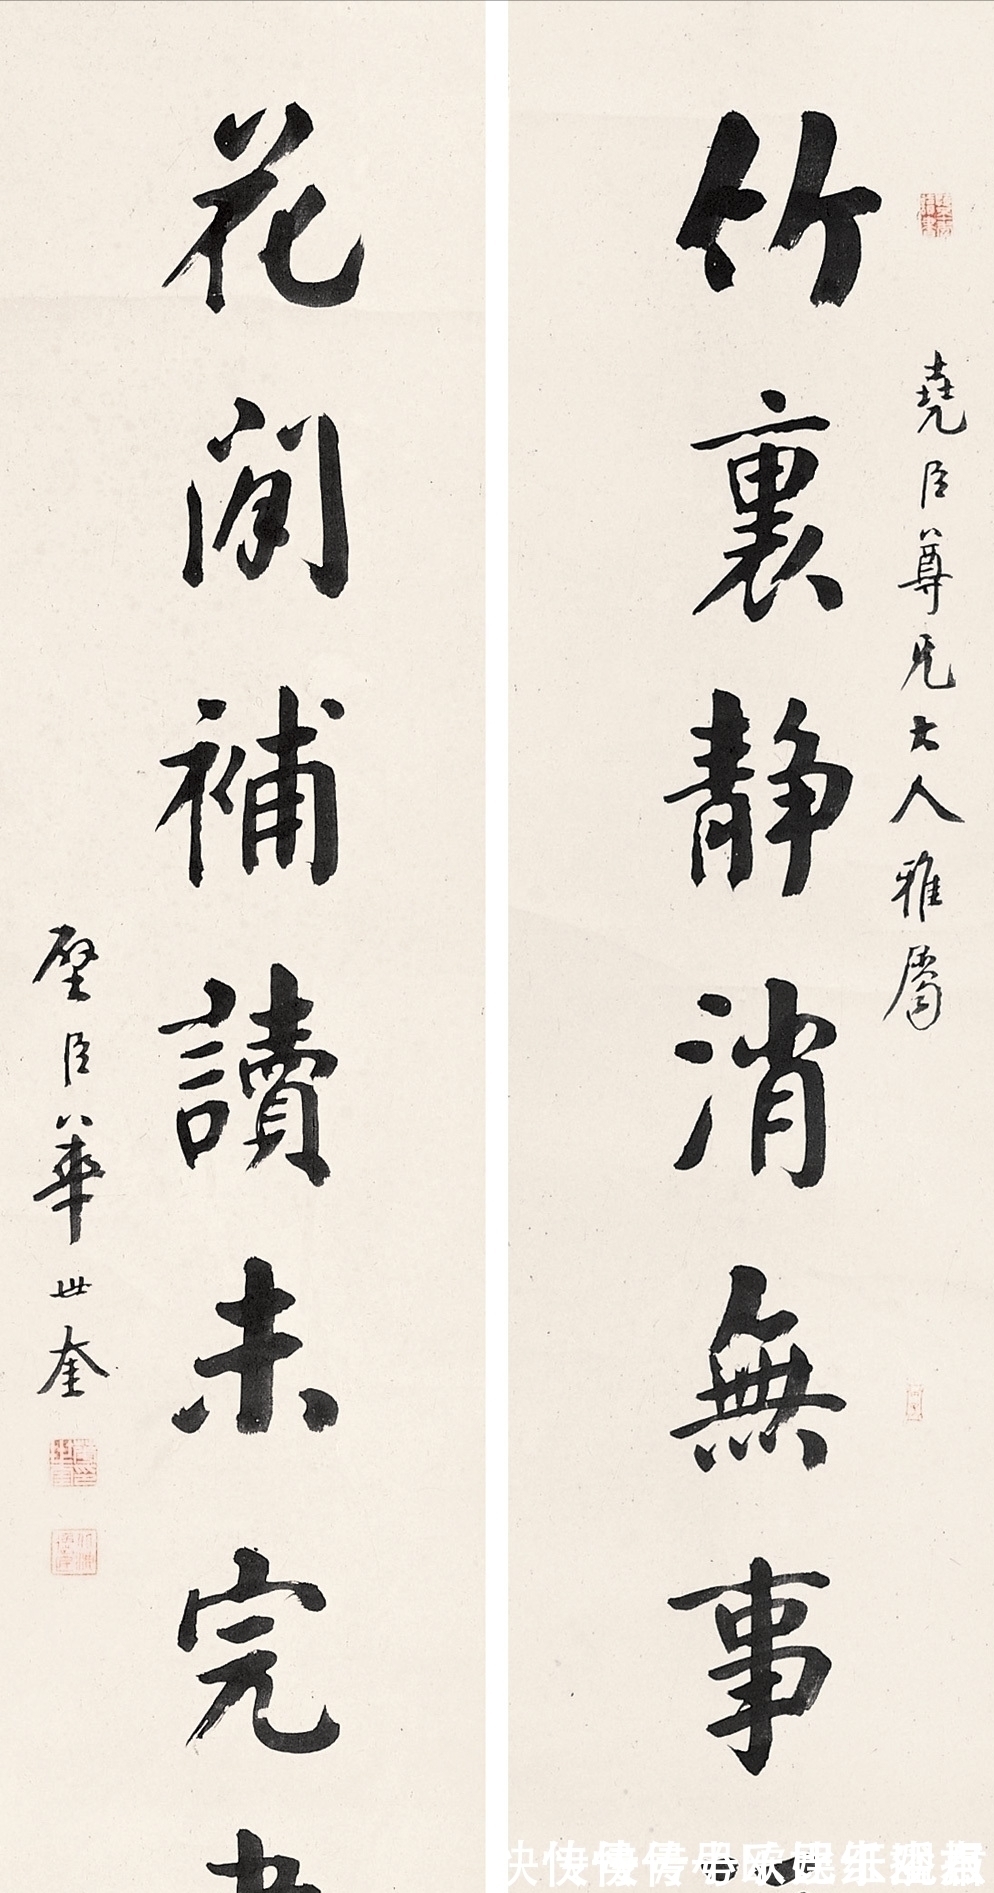 堯臣尊兄大人雅屬
竹裏靜消無事
花間補讀未完書
璧臣華世奎